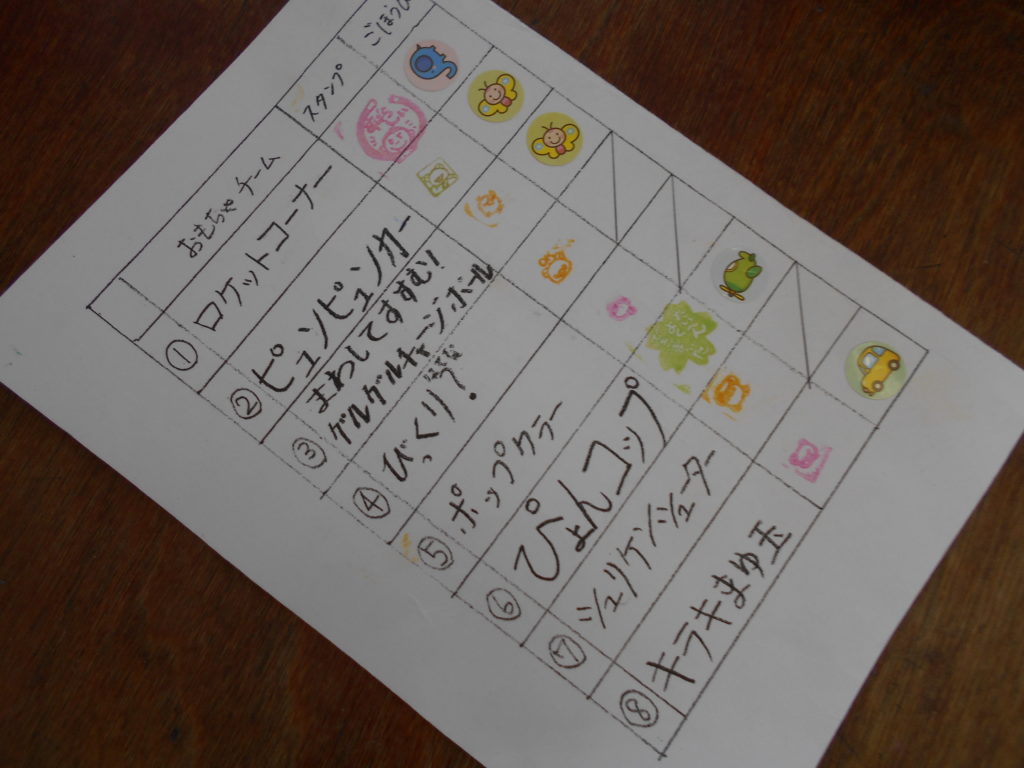 おもちゃチーム スタンプ
① ロケットコーナー
② ピュンピュンカー
③ まわしてすすむ!
グルグルチャージボール
④ びっくり!
⑤ ポップクラー
⑥ ぴょんコップ
⑦ シュリケンシューター
⑧ キラキラまゆ玉